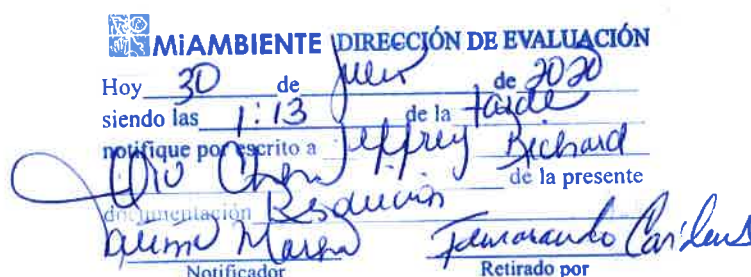 MiAMBIENTE DIRECCIÓN DE EVALUACIÓN
Hoy 30 de Julio de 2020
siendo las 1:13 de la tarde
notifique por escrito a Jeffrey Richard
de la presente
documentación Resolución
Notificador Retirado por